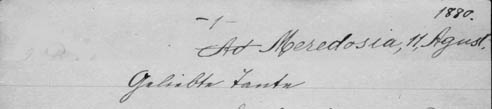 1880.
-1-
Ad Meredosia, 11, Agust.
Geliebte Tante